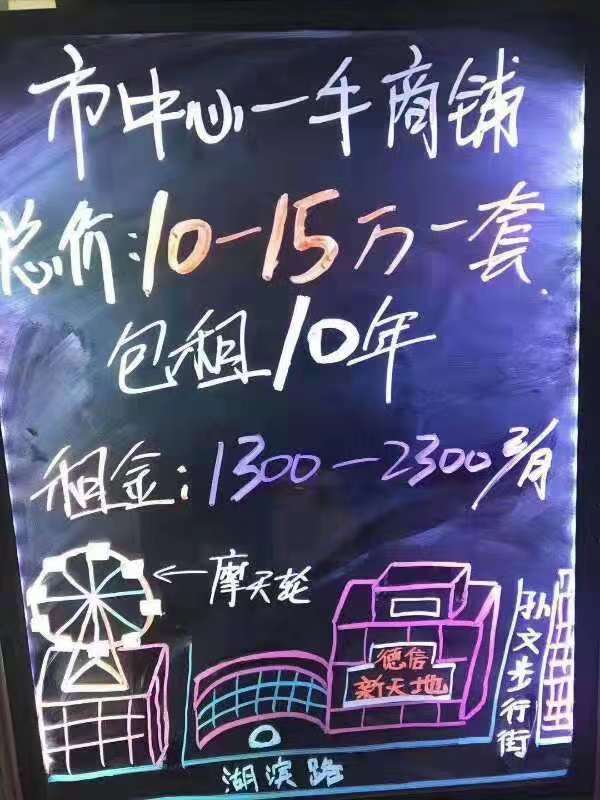 市中心一手商铺
总价:10-15万一套
包租10年
租金:1300-2300元/月
摩天轮
德信
新天地
孙文步行街
湖滨路